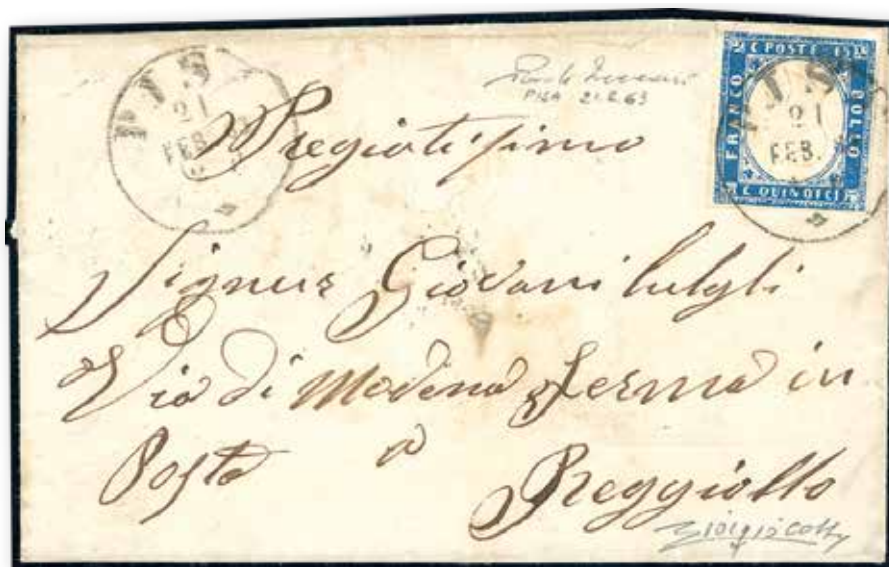 PISA
21
FEB.
PISA 21.2.63
C POSTE 15
FRANCO
BOLLO
C QUINDICI
PISA
21
FEB.
Pregiatissimo
Signur Giovani
Via di Modena ferma in
Posta a
Reggiollo